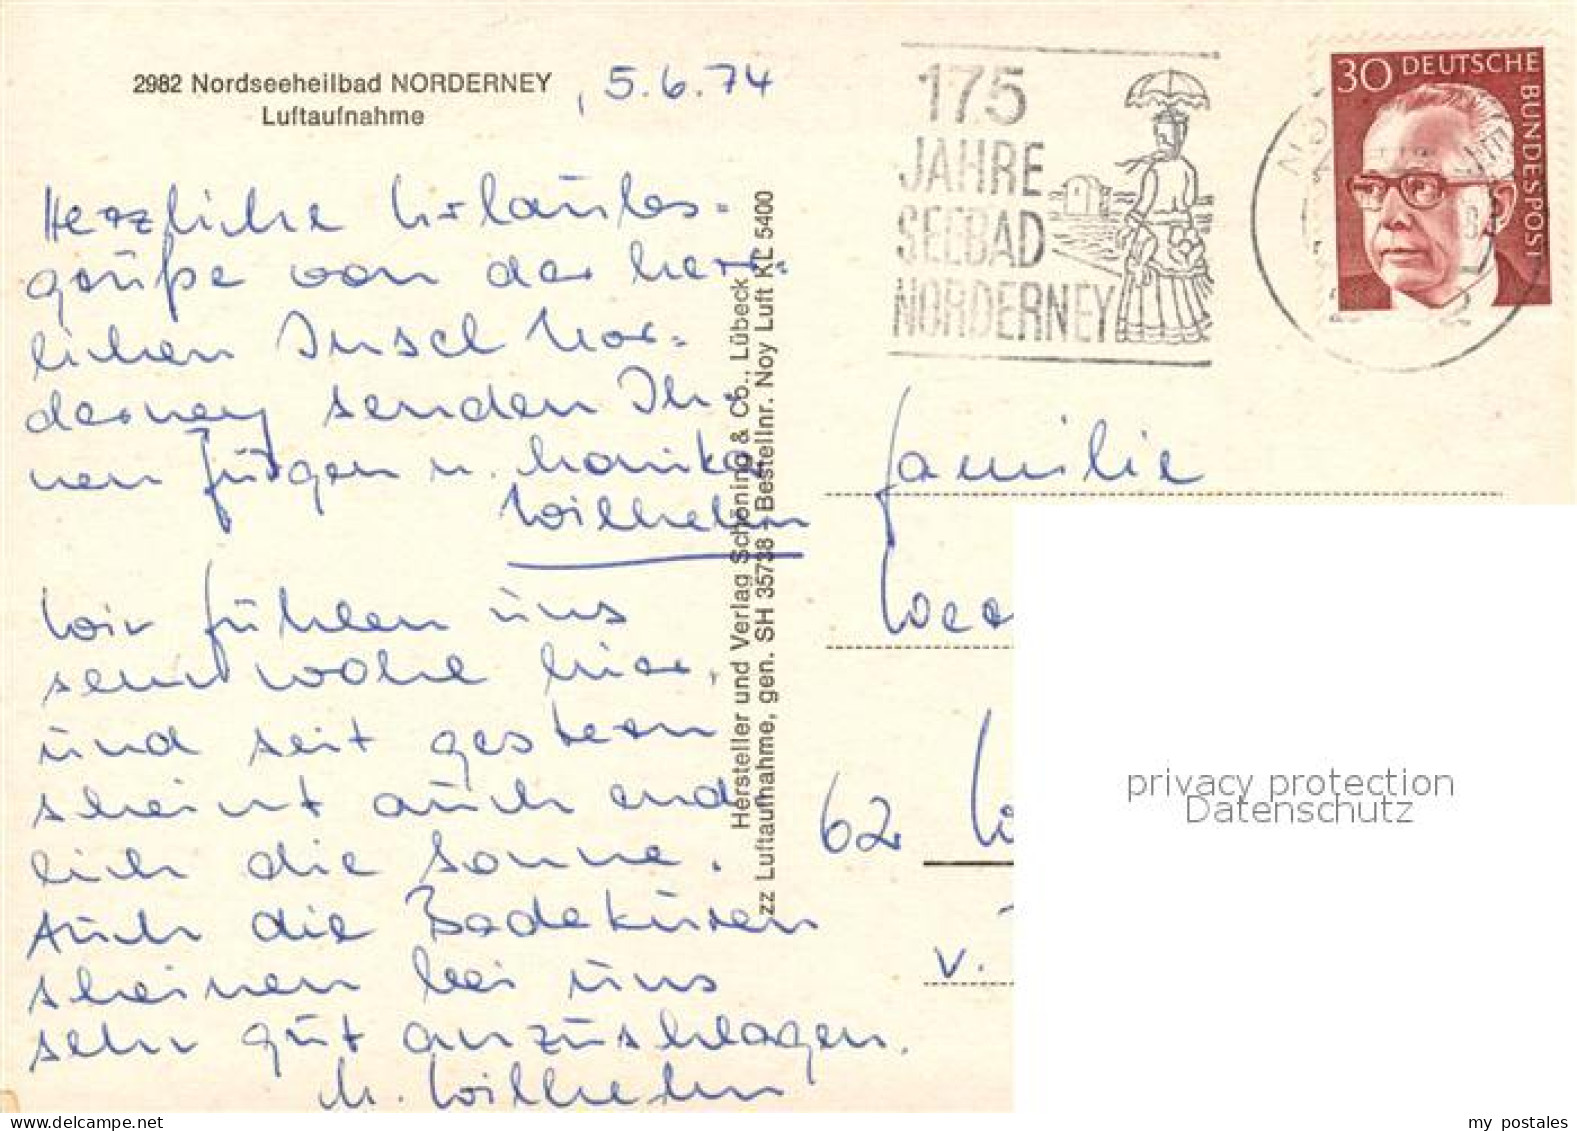 2982 Nordseeheilbad NORDERNEY
Luftaufnahme
, 5.6.74
Herzliche Urlaubs-
grüße von der herr-
lichen Insel Nor-
derney senden Ih-
nen Jürgen u. Monika
Wilhelm
Wir fühlen uns
sehr wohl hier,
und seit gestern
scheint auch end-
lich die Sonne.
Auch die Badekuren
scheinen bei uns
sehr gut anzuschlagen.
M. Wilhelm
Hersteller und Verlag Schöning & Co., Lübeck
zz Luftaufnahme, gen. SH 35738 - Bestellnr. Noy Luft KL 5400
175
JAHRE
SEEBAD
NORDERNEY
30 DEUTSCHE
BUNDESPOST
Familie
62
v.
privacy protection
Datenschutz
my postales